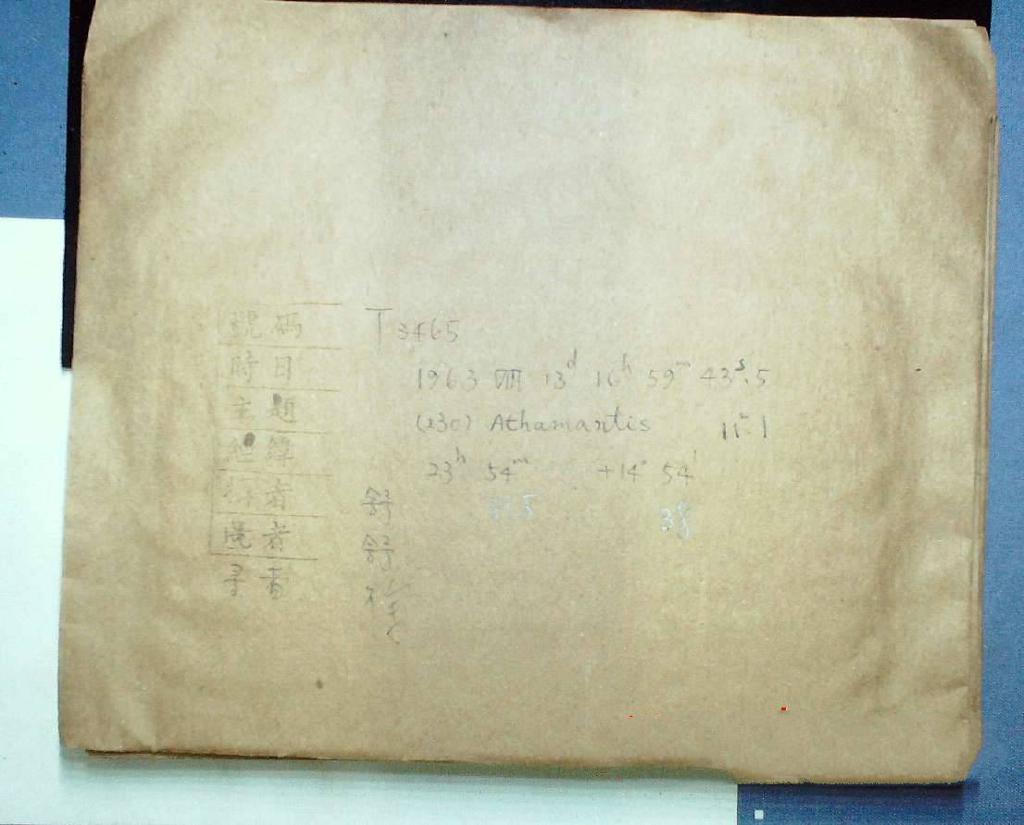 號碼 T3465
時日 1963 VIII 13ᵈ 16ʰ 59ᵐ 43ˢ.5
主題 (230) Athamantis 11ᵐ.1
經緯 23ʰ 54ᵐ +14° 54′
38
者 舒
者 舒